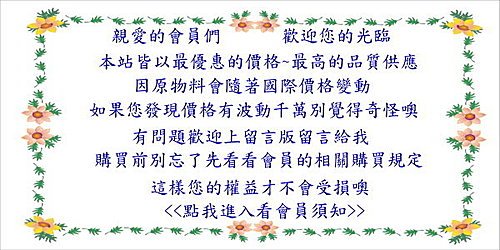 親愛的會員們 歡迎您的光臨
本站皆以最優惠的價格~最高的品質供應
因原物料會隨著國際價格變動
如果您發現價格有波動千萬別覺得奇怪噢
有問題歡迎上留言版留言給我
購買前別忘了先看看會員的相關購買規定
這樣您的權益才不會受損噢
<<點我進入看會員須知>>